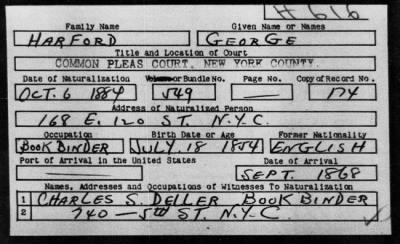 # 616
Family Name Given Name or Names
HARFORD GEORGE
Title and Location of Court
COMMON PLEAS COURT, NEW YORK COUNTY.
Date of Naturalization Volume or Bundle No. Page No. Copy of Record No.
OCT. 6 1884 549 — 174
Address of Naturalized Person
168 E. 120 ST. N.Y.C.
Occupation Birth Date or Age Former Nationality
BOOK BINDER JULY. 18 1854 ENGLISH
Port of Arrival in the United States Date of Arrival
SEPT. 1868
Names, Addresses and Occupations of Witnesses To Naturalization
1 CHARLES S. DELLER BOOK BINDER
2 740 — 5TH ST. N.Y.C.